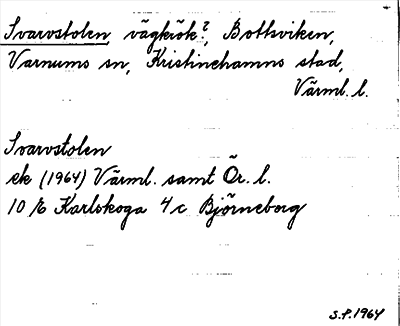 Svarvstolen, vägkrök?, Bottsviken,
Varnums sn, Kristinehamns stad,
Värml. l.
Svarvstolen
ek (1964) Värml. samt Ör. l.
10 E Karlskoga 4 c Björneborg
S.P. 1964